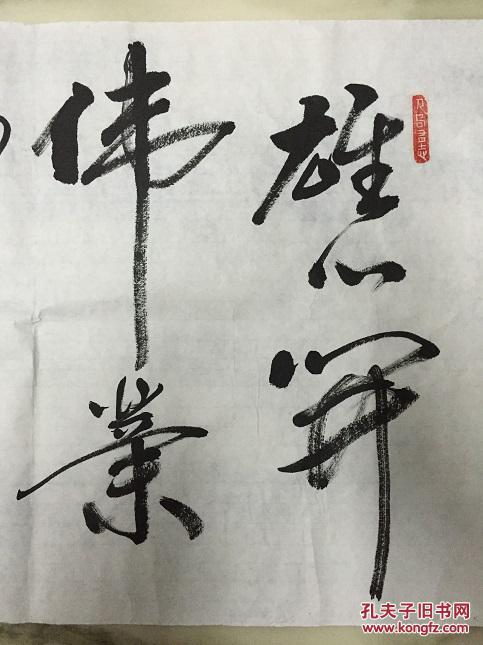 雄心开
伟业
孔夫子旧书网
www.kongfz.com